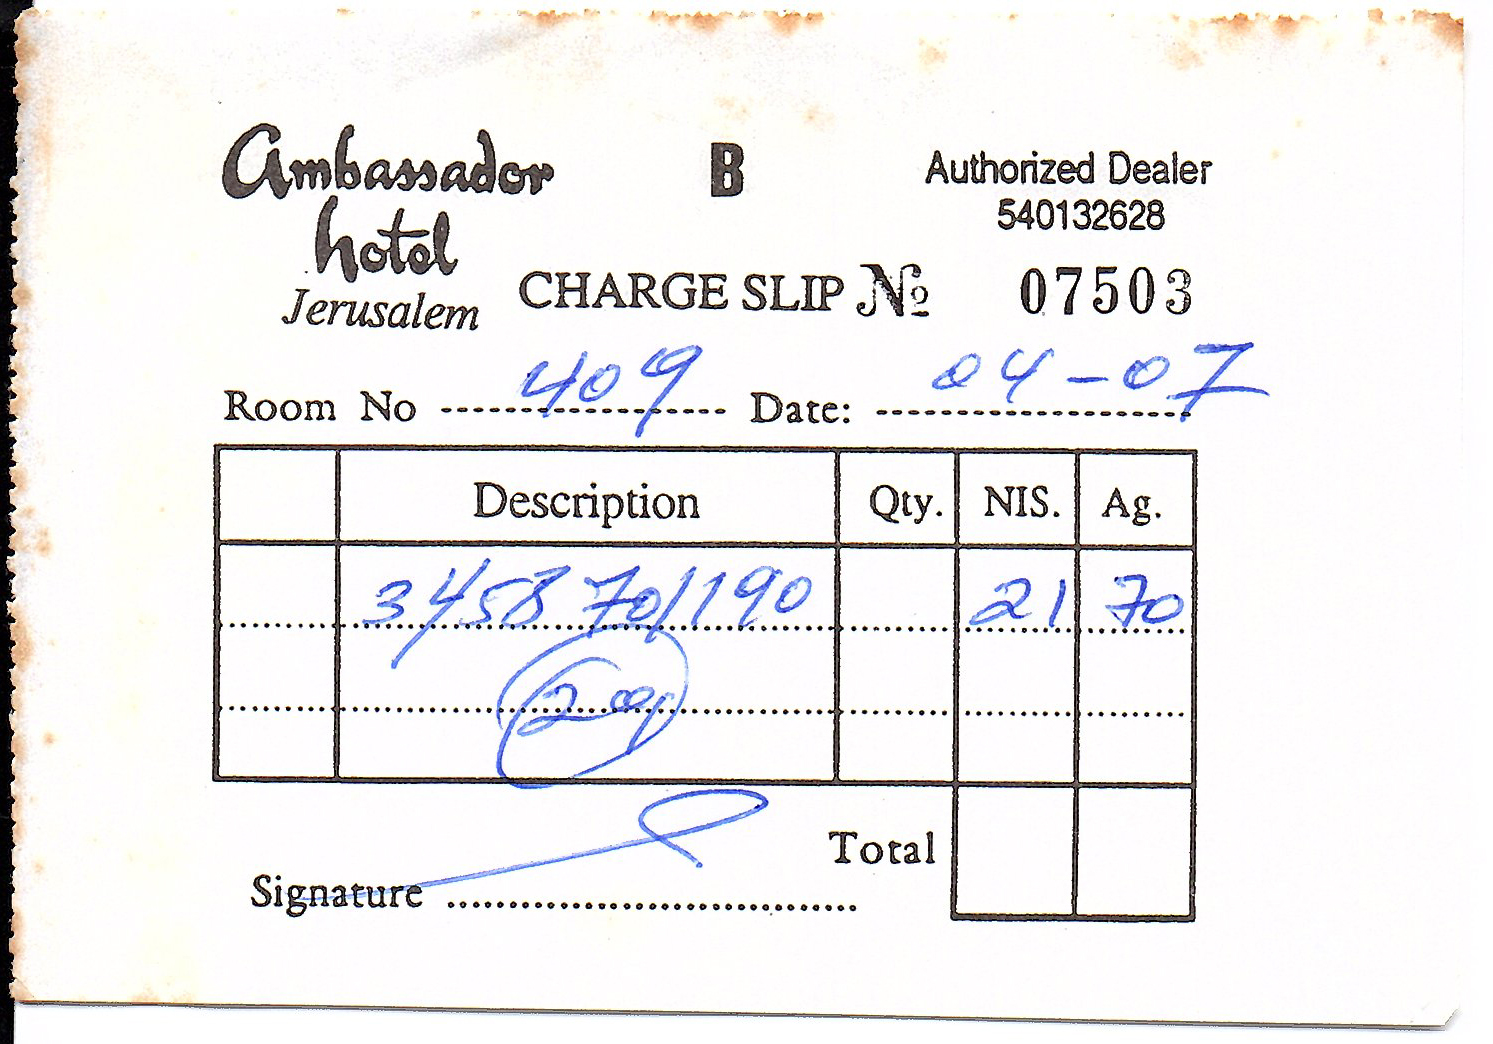 Ambassador B Authorized Dealer
hotel 540132628
Jerusalem CHARGE SLIP № 07503
Room No 409 Date: 04-07
Description Qty. NIS. Ag.
70/190 21 70
Total
Signature